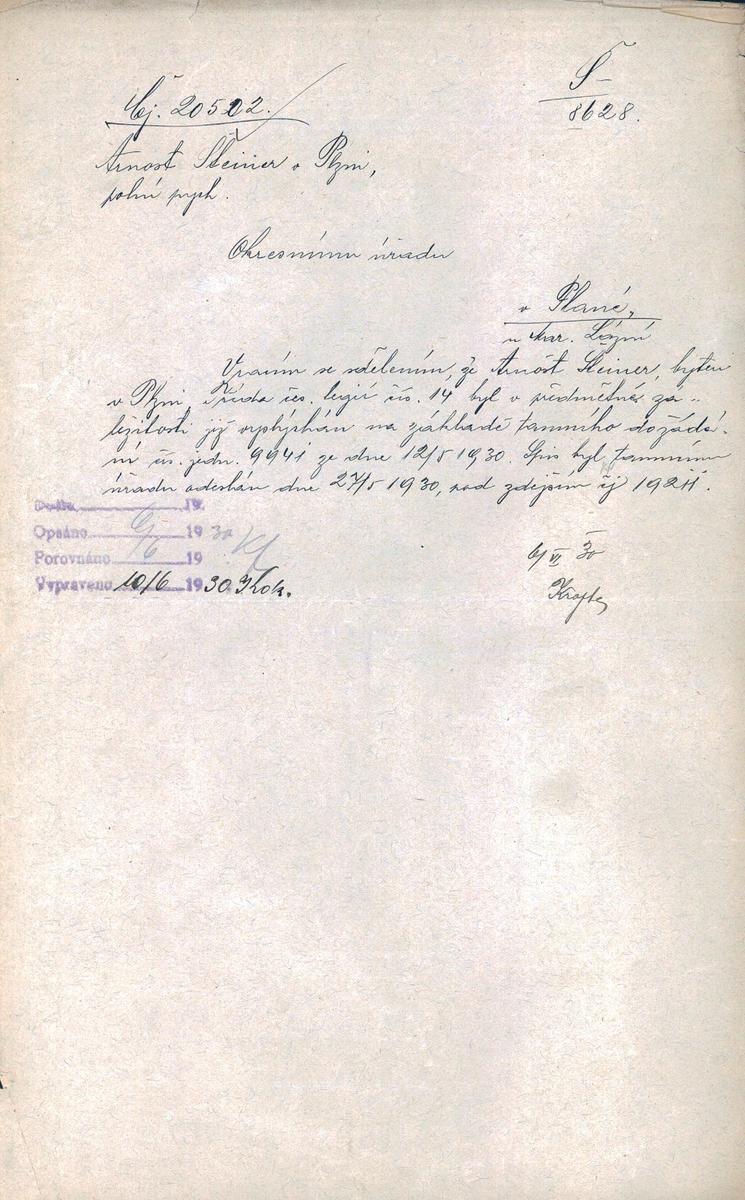 Čj. 20522.
S-
8628.
Arnošt Steiner v Plzni,
polní pych.
Okresnímu úřadu
v Plané,
u Mar. Lázní
Vracím se sdělením, že Arnošt Steiner, bytem
v Plzni, Třída čes. legií čís. 14 byl v předmětné zá-
ležitosti již vyslýchán na základě tamního dožádá-
ní čís. jedn. 9941 ze dne 12/5 1930. Spis byl tamnímu
úřadu odeslán dne 27/5 1930, pod zdejším čj
Došlo 19
Opsáno 6/ 1930
Porovnáno /6 19
Vypraveno 10/6 1930
6/VI 30